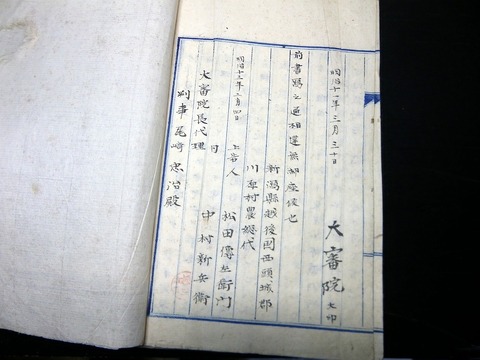 明治十一年三月三十日
大審院 大印
前書寫之通相違無御座候也
新潟縣越後國西頚城郡
川原村農惣代
明治十三年二月四日 上告人 松田傳左衛門
同 中村新兵衛
大審院長代理
判事尾崎忠治殿